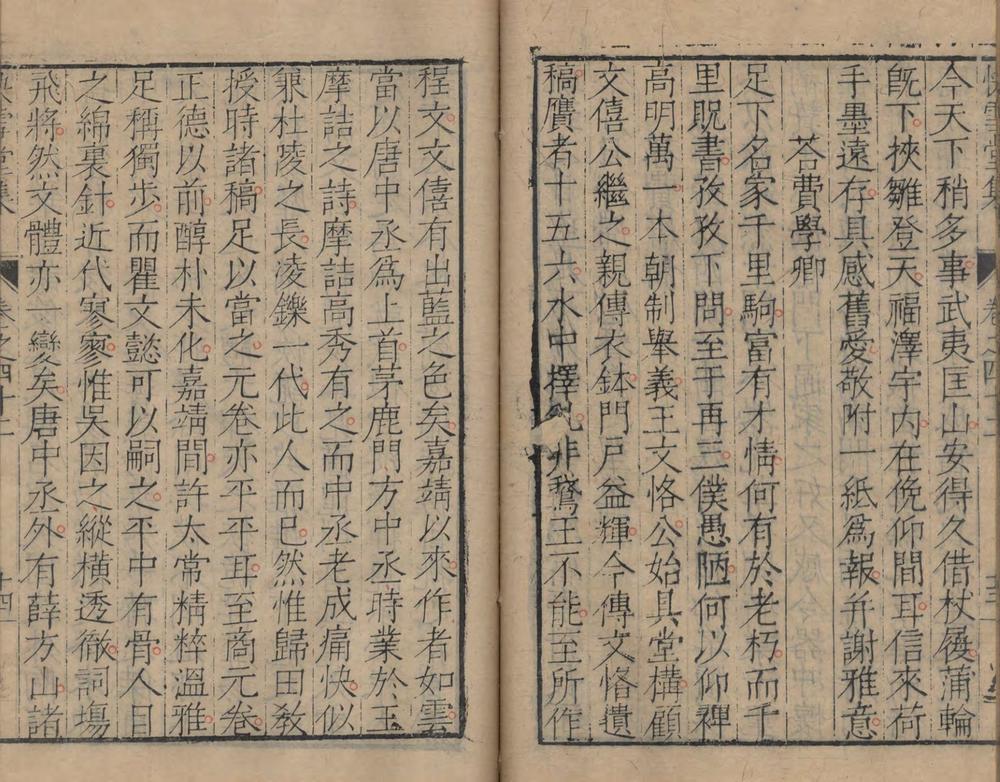 今天下稍多事武夷匡山安得久借杖屨蒲輪
旣下挾雛登天福澤宇内在俛仰間耳信來荷
手墨遠存具感舊愛敬附一紙爲報幷謝雅意
荅費學卿
足下名家千里駒富有才情何有於老朽而千
里貺書孜孜下問至于再三僕愚陋何以仰禆
高明萬一本朝制舉義王文恪公始具堂構顧
文僖公繼之親傳衣鉢門戸益輝今傳文恪遺
稿贋者十五六水中擇乳非鵞王不能至所作
程文文僖有出藍之色矣嘉靖以來作者如雲
當以唐中丞爲上首茅鹿門方中丞時業於王
摩詰之詩摩詰高秀有之而中丞老成痛快似
兼杜陵之長凌鑠一代此人而已然惟歸田敎
授時諸稿足以當之元卷亦平平耳至商元卷
正德以前醇朴未化嘉靖間許太常精粹溫雅
足稱獨步而瞿文懿可以嗣之平中有骨人目
之綿裏針近代寥寥惟吳因之縱橫透徹詞塲
飛將然文體亦一變矣唐中丞外有薛方山諸